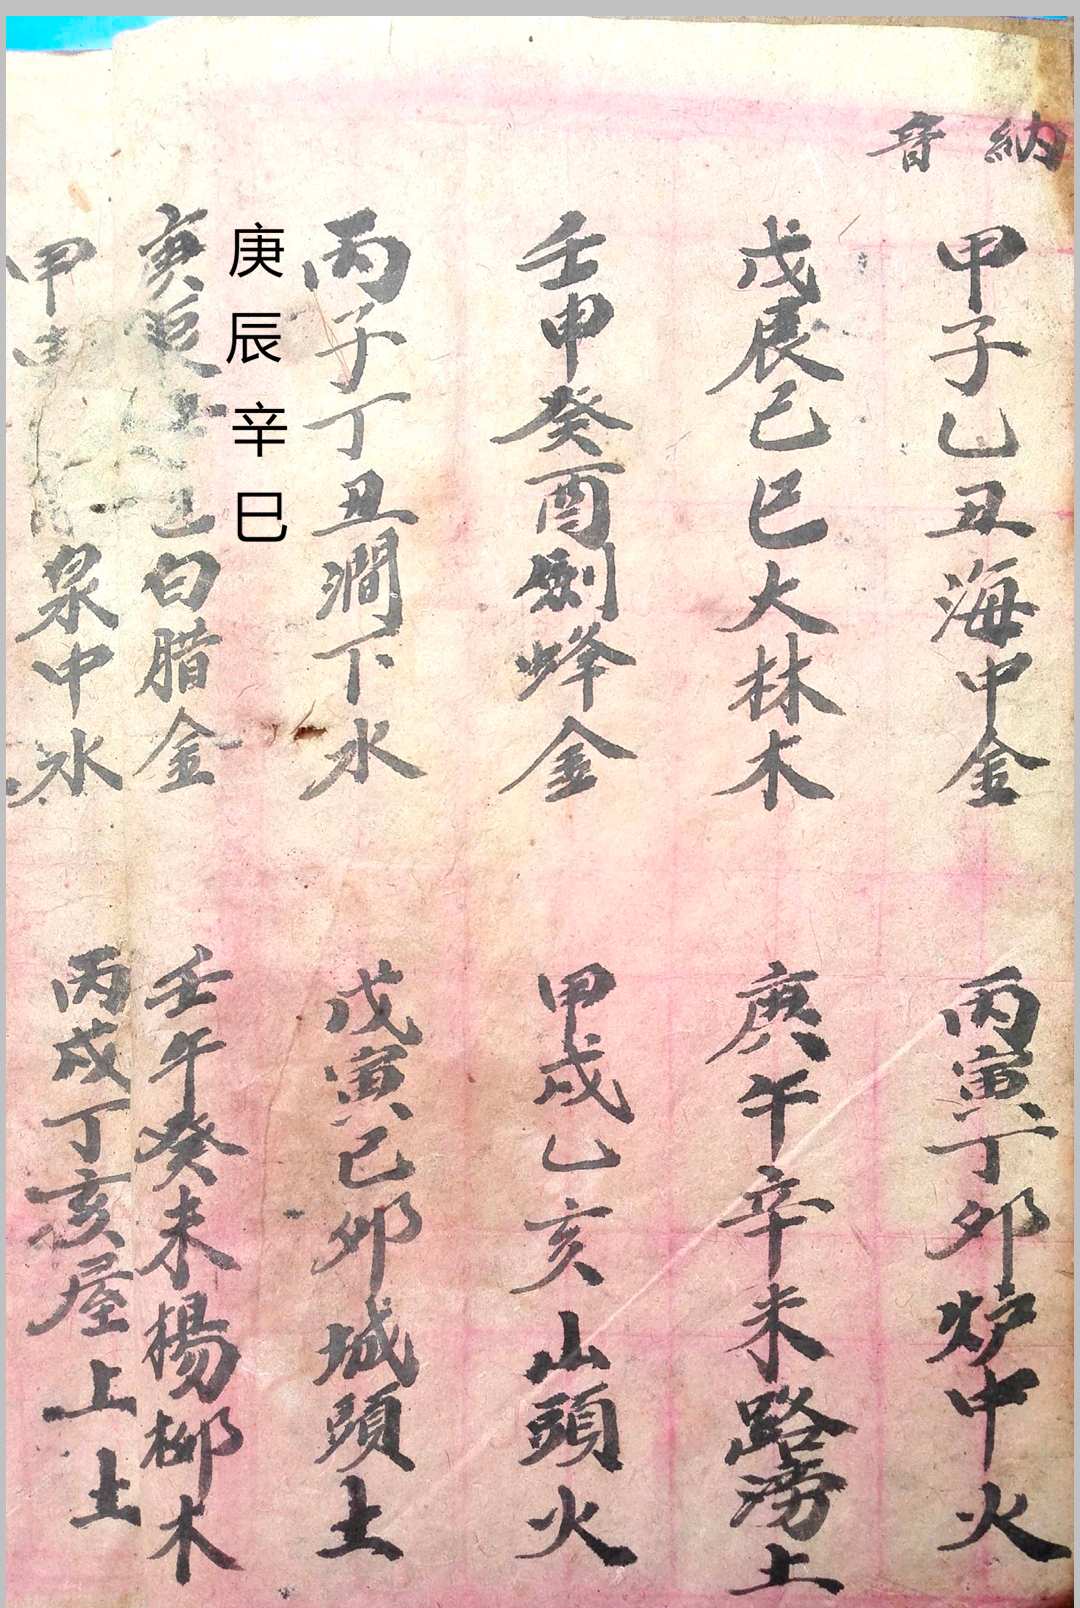 納音
甲子乙丑海中金
丙寅丁卯炉中火
戊辰己巳大林木
庚午辛未路滂土
壬申癸酉劍蜂金
甲戌乙亥山頭火
丙子丁丑澗下水
戊寅己卯城頭土
庚辰辛巳
庚辰 巳白腊金
壬午癸未楊柳木
甲申 泉中水
丙戌丁亥屋上土